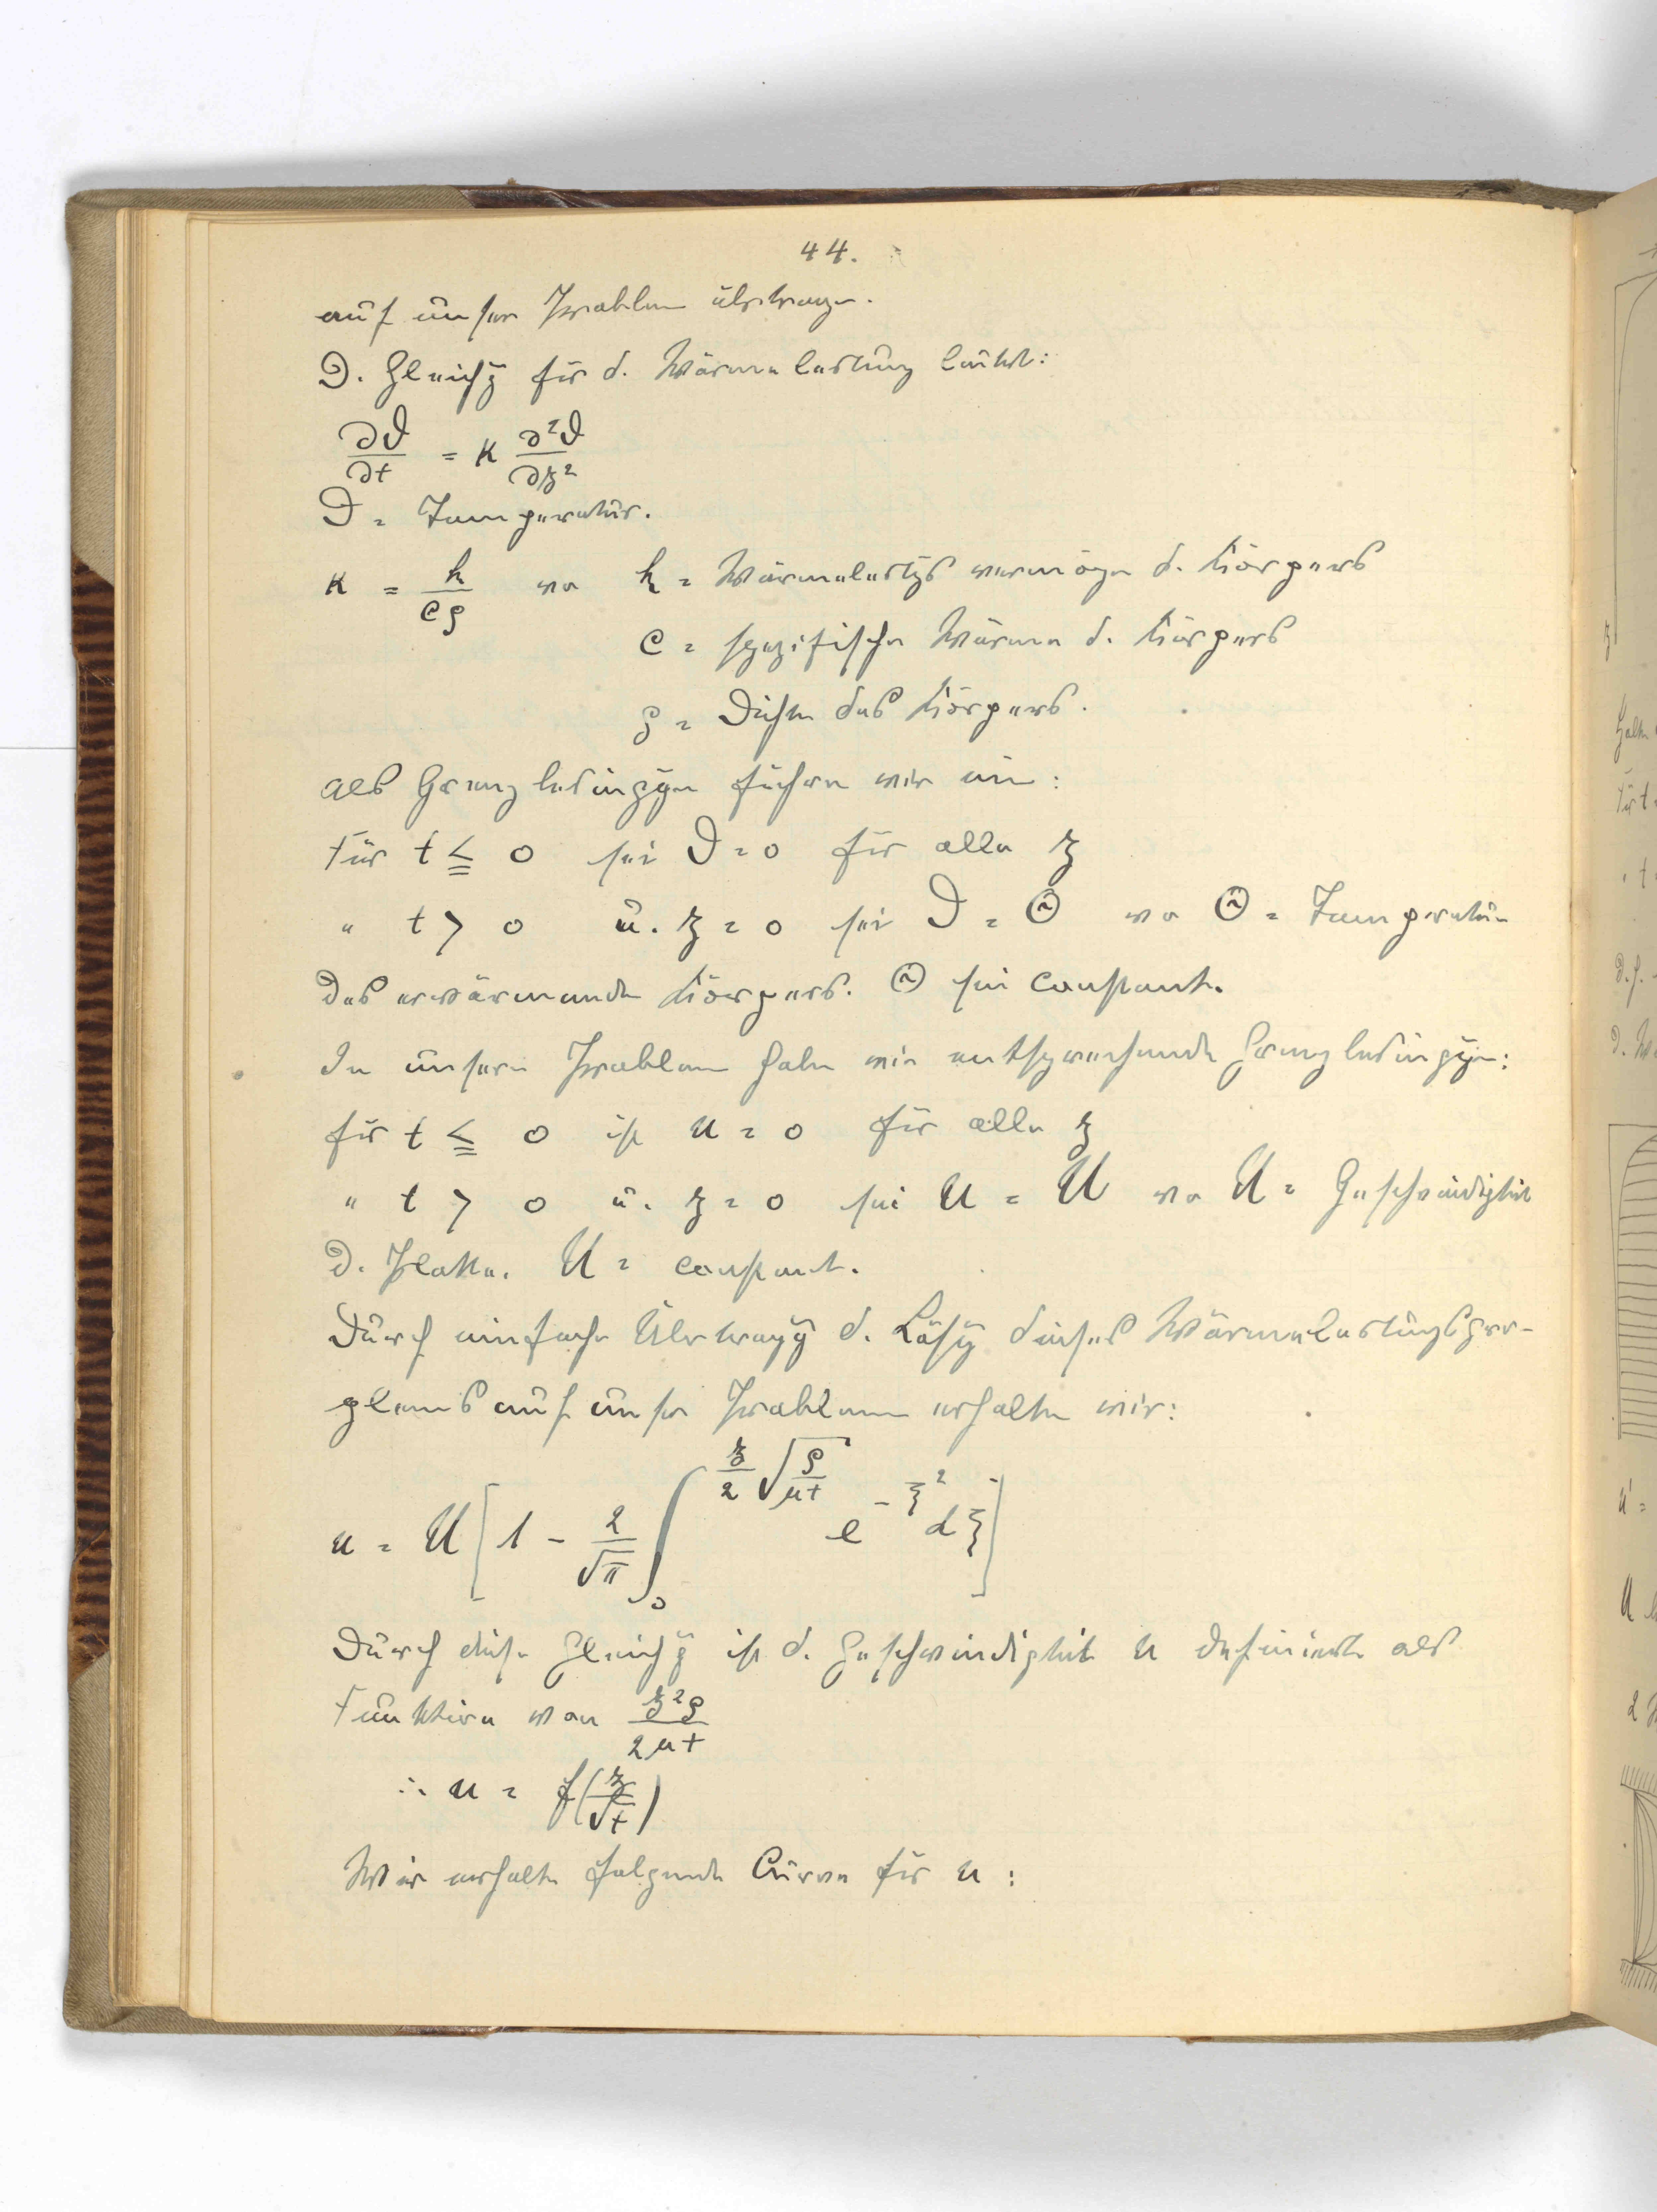 44.
auf unser Problem übertragen.
D. Gleichg für d. Wärmeleitung lautet:
∂ϑ/∂t = κ ∂²ϑ/∂z²
ϑ = Temperatur.
κ = k/cρ wo k = Wärmeleitgs vermögen d. Körpers
c = spezifische Wärme d. Körpers
ρ = Dichte des Körpers.
als Grenzbedinggen führen wir ein:
Für t ≦ 0 sei ϑ = 0 für alle z
" t > 0 u. z = 0 sei ϑ = Θ wo Θ = Temperatur
des erwärmende Körpers. Θ sei constant.
In unserem Problem haben wir entsprechende Grenzbedinggen:
für t ≦ 0 ist u = 0 für alle z
" t > 0 u. z = 0 sei u = U wo U = Geschwindigkeit
d. Platte. U = constant.
Durch einfache Übertragg d. Lösg dieses Wärmeleitungspro-
blems auf unser Problem erhalten wir:
u = U [1 - 2/√π ∫₀^(z/2 √(ρ/μt)) e^(-ξ²) dξ]
Durch diese Gleichg ist d. Geschwindigkeit u definiert als
Funktion von z²ρ/2μt
∴ u = f(z/√t)
Wir erhalten folgende Curve für u: